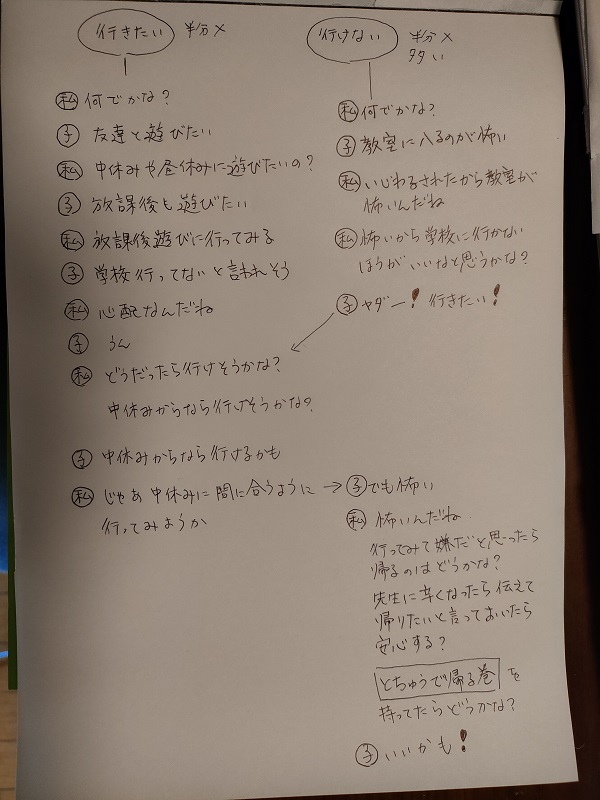 行きたい 半分×
私 何でかな?
子 友達と遊びたい
私 中休みや昼休みに遊びたいの?
子 放課後も遊びたい
私 放課後遊びに行ってみる
子 学校行ってないと言われそう
私 心配なんだね
子 うん
私 どうだったら行けそうかな?
中休みからなら行けそうかな?
子 中休みからなら行けるかも
私 じゃあ中休みに間に合うように →
行ってみようか
行けない 半分×
多い
私 何でかな?
子 教室に入るのが怖い
私 いじわるされたから教室が
怖いんだね
私 怖いから学校に行かない
ほうがいいなと思うかな?
子 ヤダー! 行きたい!
子 でも怖い
私 怖いんだね
行ってみて嫌だと思ったら
帰るのはどうかな?
先生に辛くなったら伝えて
帰りたいと言っておいたら
安心する?
とちゅうで帰る巻 を
持ってたらどうかな?
子 いいかも!